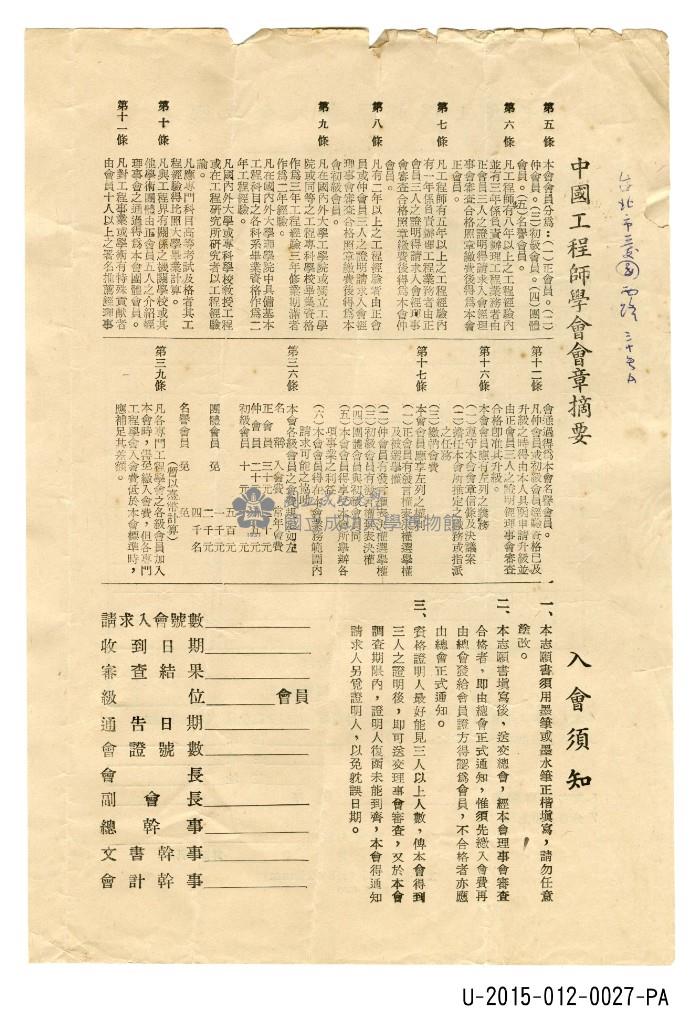 中國工程師學會會章摘要
第五條
本會會員分為：(一)正會員。(二)
仲會員。(三)初級會員。(四)團體
會員。(五)名譽會員。
第六條
凡工程師有八年以上之工程經驗內
並有三年係負責辦理工程業務者由
正會員三人之證明得請求入會經理
事會審查合格照章繳費後得為本會
正會員。
第七條
凡工程師有五年以上之工程經驗內
有一年係負責辦理工程業務者由正
會員三人之證明得請求入會經理事
會審查合格照章繳費後得為本會仲
會員。
第八條
凡有二年以上之工程經驗者由正會
員或仲會員三人之證明請求入會經
理事會審查合格照章繳費後得為本
會初級會員。
第九條
凡在國內外大學工學院或獨立工學
院或同等之工程專科學校畢業資格
作為三年工程經驗三年修業期滿者
作為二年經驗。
凡在國內外大學理學院中具備基本
工程科目之各科系畢業資格作為二
年工程經驗。
凡國內外大學或專科學校教授工程
或在工程研究所研究者以工程經驗
論。
凡應專門科目高等考試及格者其工
程經驗得比照大學畢業計算。
第十條
凡與工程界有關係之機關學校或其
他學術團體由正會員五人之介紹經
理事會之通過得為本會團體會員。
第十一條
凡對工程事業或學術有特殊貢獻者
由會員十人以上之署名推薦經理事
會通過得為本會名譽會員。
第十二條
凡仲會員或初級會員經驗資格已及
升級之時得由本人具願申請升級並
由正會員三人之證明經理事會審查
合格即准其升級。
第十六條
本會會員應有左列之義務
(一)遵守本會會章信條及決議案
(二)擔任本會所推定之職務或指派
之任務
(三)繳納會費
第十七條
本會會員應享左列之權利
(一)正會員有發言權表決權選舉權
及被選舉權
(二)仲會員有發言權表決權選舉權
(三)初級會員有發言權表決權
(四)團體會員與初級會員同
(五)本會會員得享受本會所舉辦各
項事業之利益
(六)本會會員得在本會業務範圍內
請求可能之協助
第三六條
本會各級會員之會費規定如左
名稱 入會費 常年會費
正會員 三十元
仲會員 二十元
初級會員 十元
團體會員 免
名譽會員 免
(暫以臺幣計算)
第三九條
凡各專門工程學會之各級會員加入
本會時，得免繳入會費，但各專門
工程學會入會費低於本會標準時，
應補足其差額。
入會須知
一、本志願書須用墨筆或墨水筆正楷填寫，請勿任意
塗改。
二、本志願書填寫後，送交總會，經本會理事會審查
合格者，即由總會正式通知，惟須先繳入會費再
由總會發給會員證方得認為會員，不合格者亦應
由總會正式通知。
三、資格證明人最好能覓三人以上人數，俾本會得到
三人之證明後，即可送交理事會審查，又於本會
調查期限內，證明人復函未能到齊，本會得通知
請求人另覓證明人，以免躭誤日期。
請求入會號數
收到日期
審查結果
級位 會員
通告日期
會證號數
會長
副會長
總幹事
文書幹事
會計幹事
國立成功大學博物館
U-2015-012-0027-PA